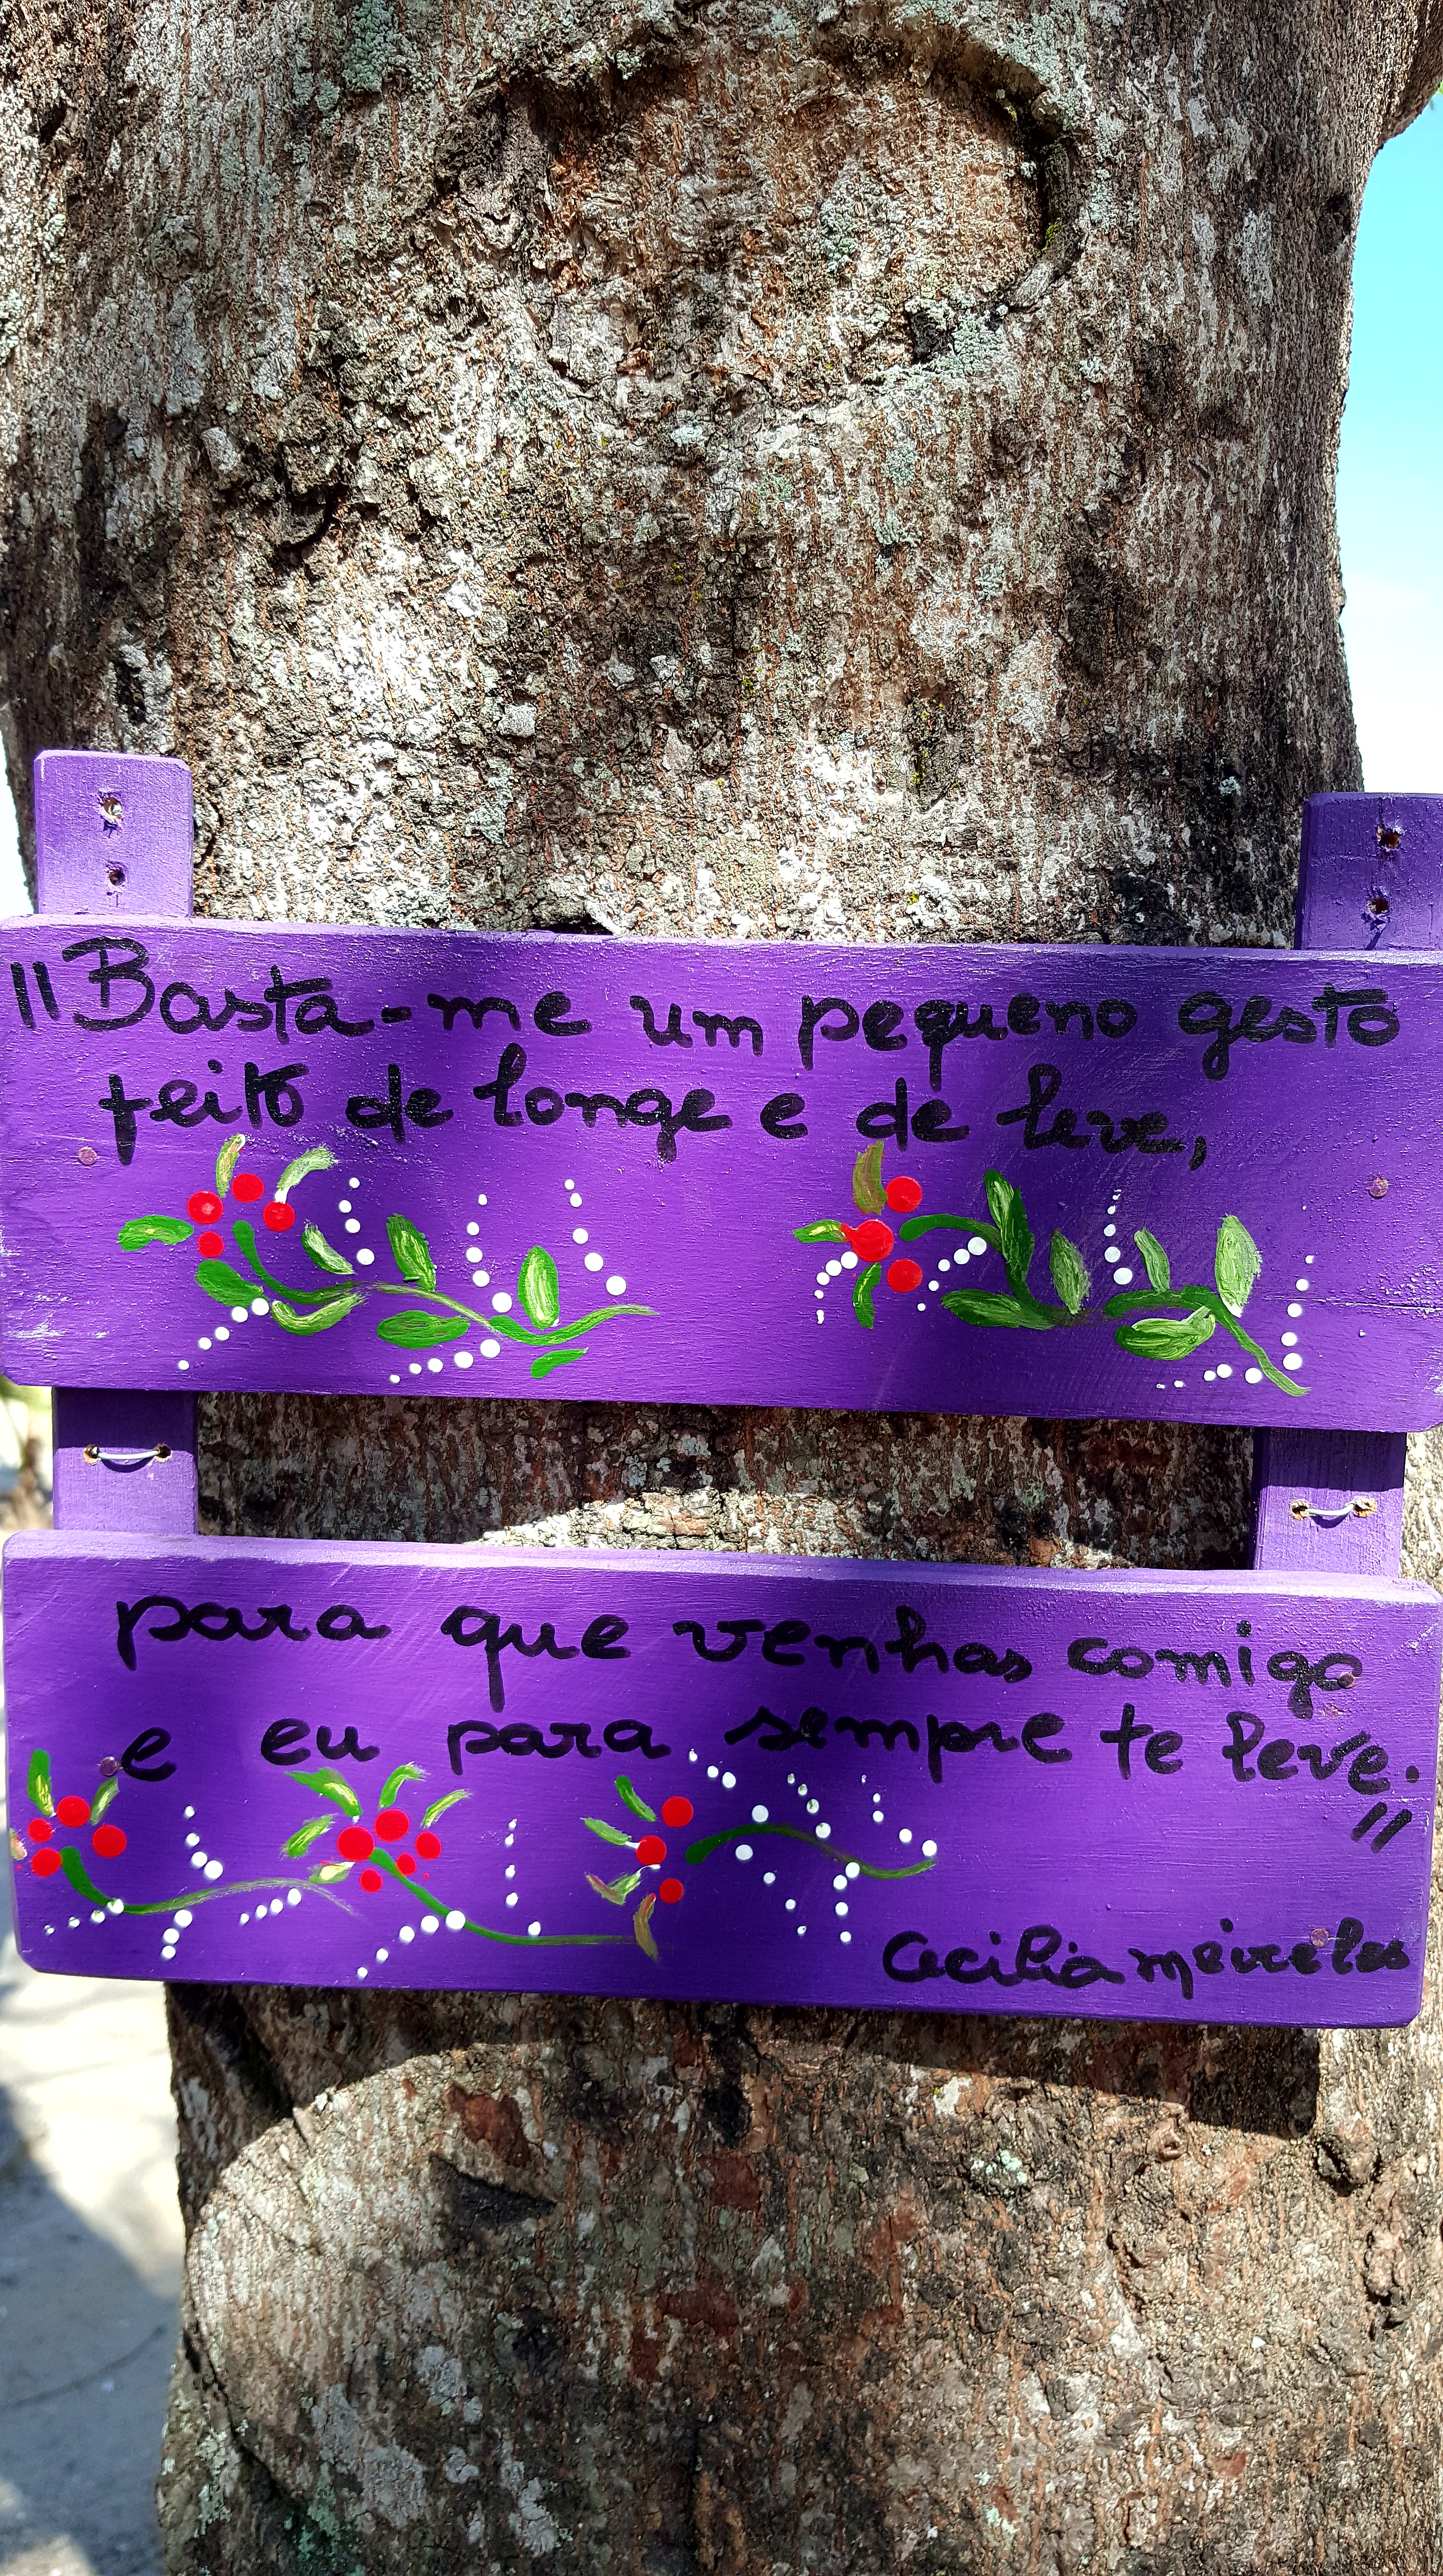 "Basta-me um pequeno gesto
feito de longe e de leve,
para que venhas comigo
e eu para sempre te leve."
Cecilia meireles